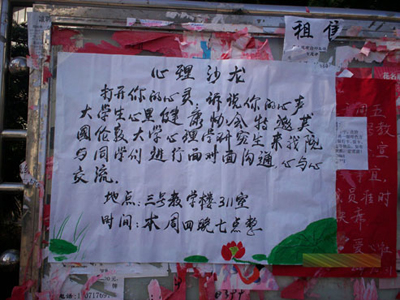 心理沙龙
打开你的心灵,诉说你的心声
大学生心里健康协会特邀英
国伦敦大学心理学研究生来我院
与同学们进行面对面沟通,心与心
交流.
地点:三号教学楼311室
时间:本周四晚七点整
租
教
室